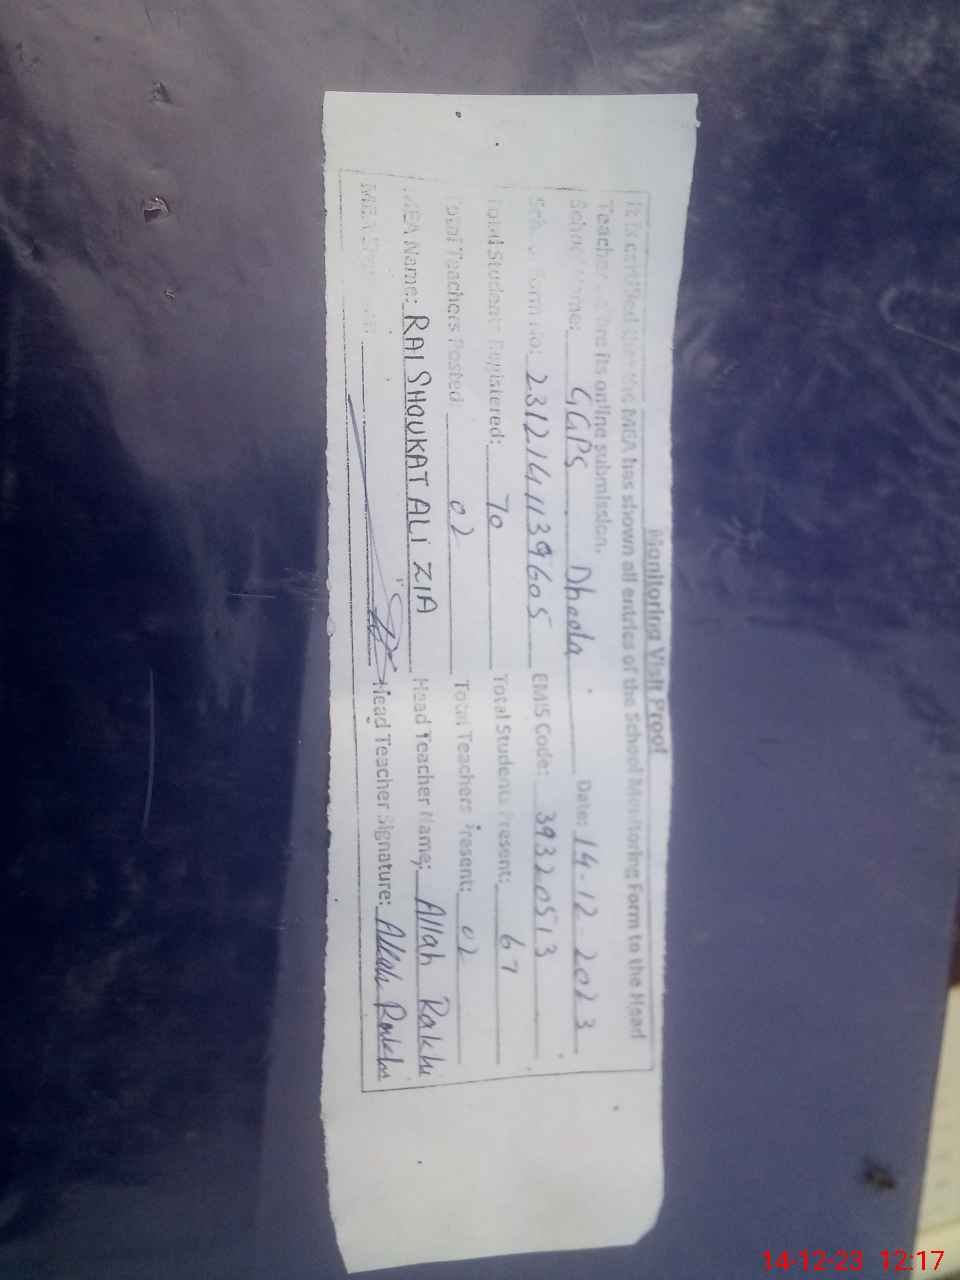 Monitoring Visit Proof
It is certified that the MEA has shown all entries of the School Monitoring Form to the Head
Teacher before its online submission.
School Name: GGPS Dheela Date: 14-12-2023
School Form No: 2312141139605 EMIS Code: 39320513
Total Students Registered: 70 Total Students Present: 67
Total Teachers Posted: 02 Total Teachers Present: 02
MEA Name: RAI SHOUKAT ALI ZIA Head Teacher Name: Allah Rakhi
MEA Signature: Head Teacher Signature: Allah Rakhi
14-12-23 12:17